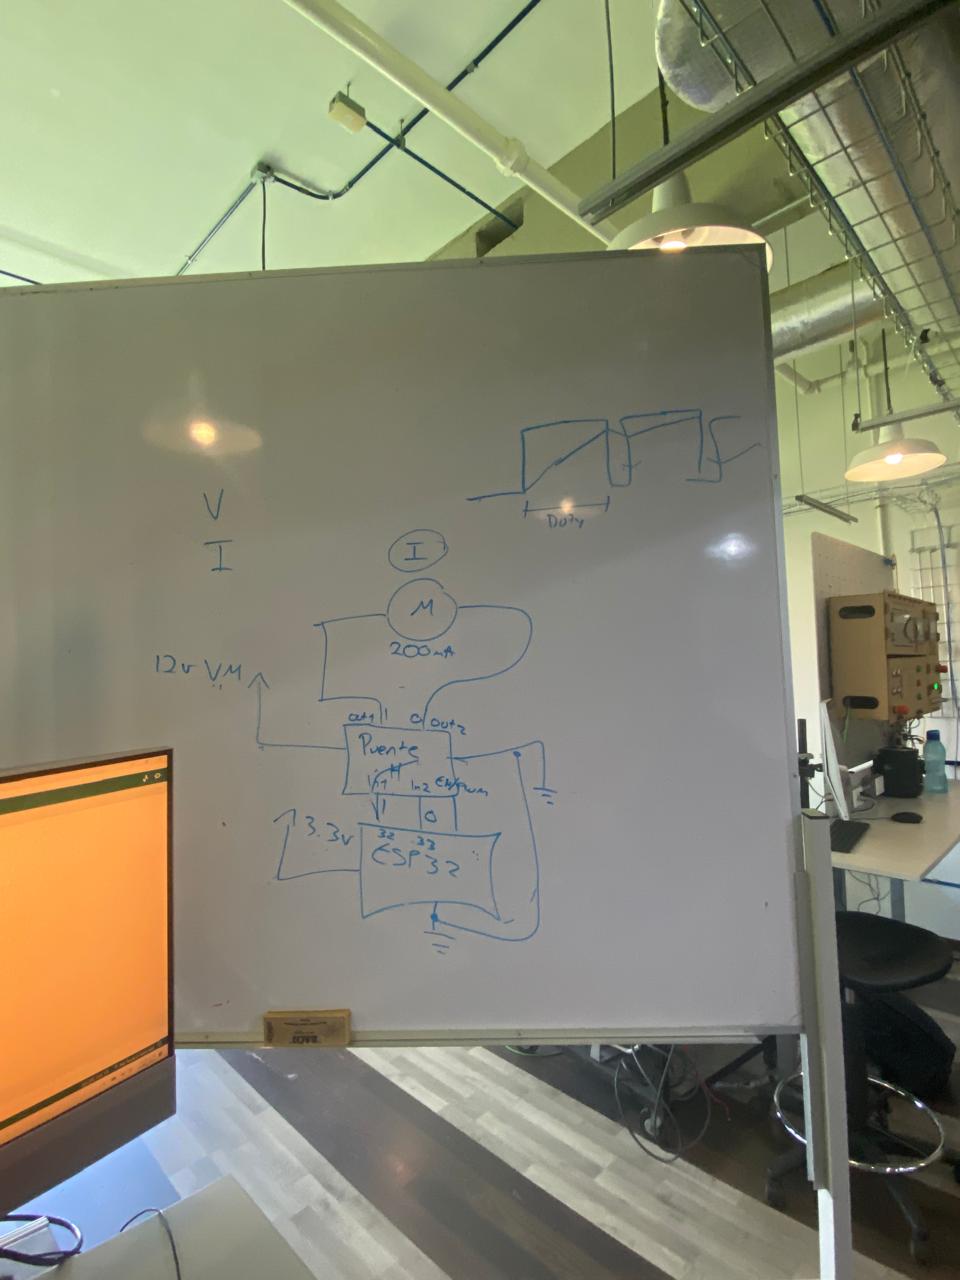 Duty
V
I
I
M
200mA
12v VM
out1 1 0 out2
Puente
H
In1 In2 EN/PWM
1 0
3.3v
32 33
ESP32
BACO